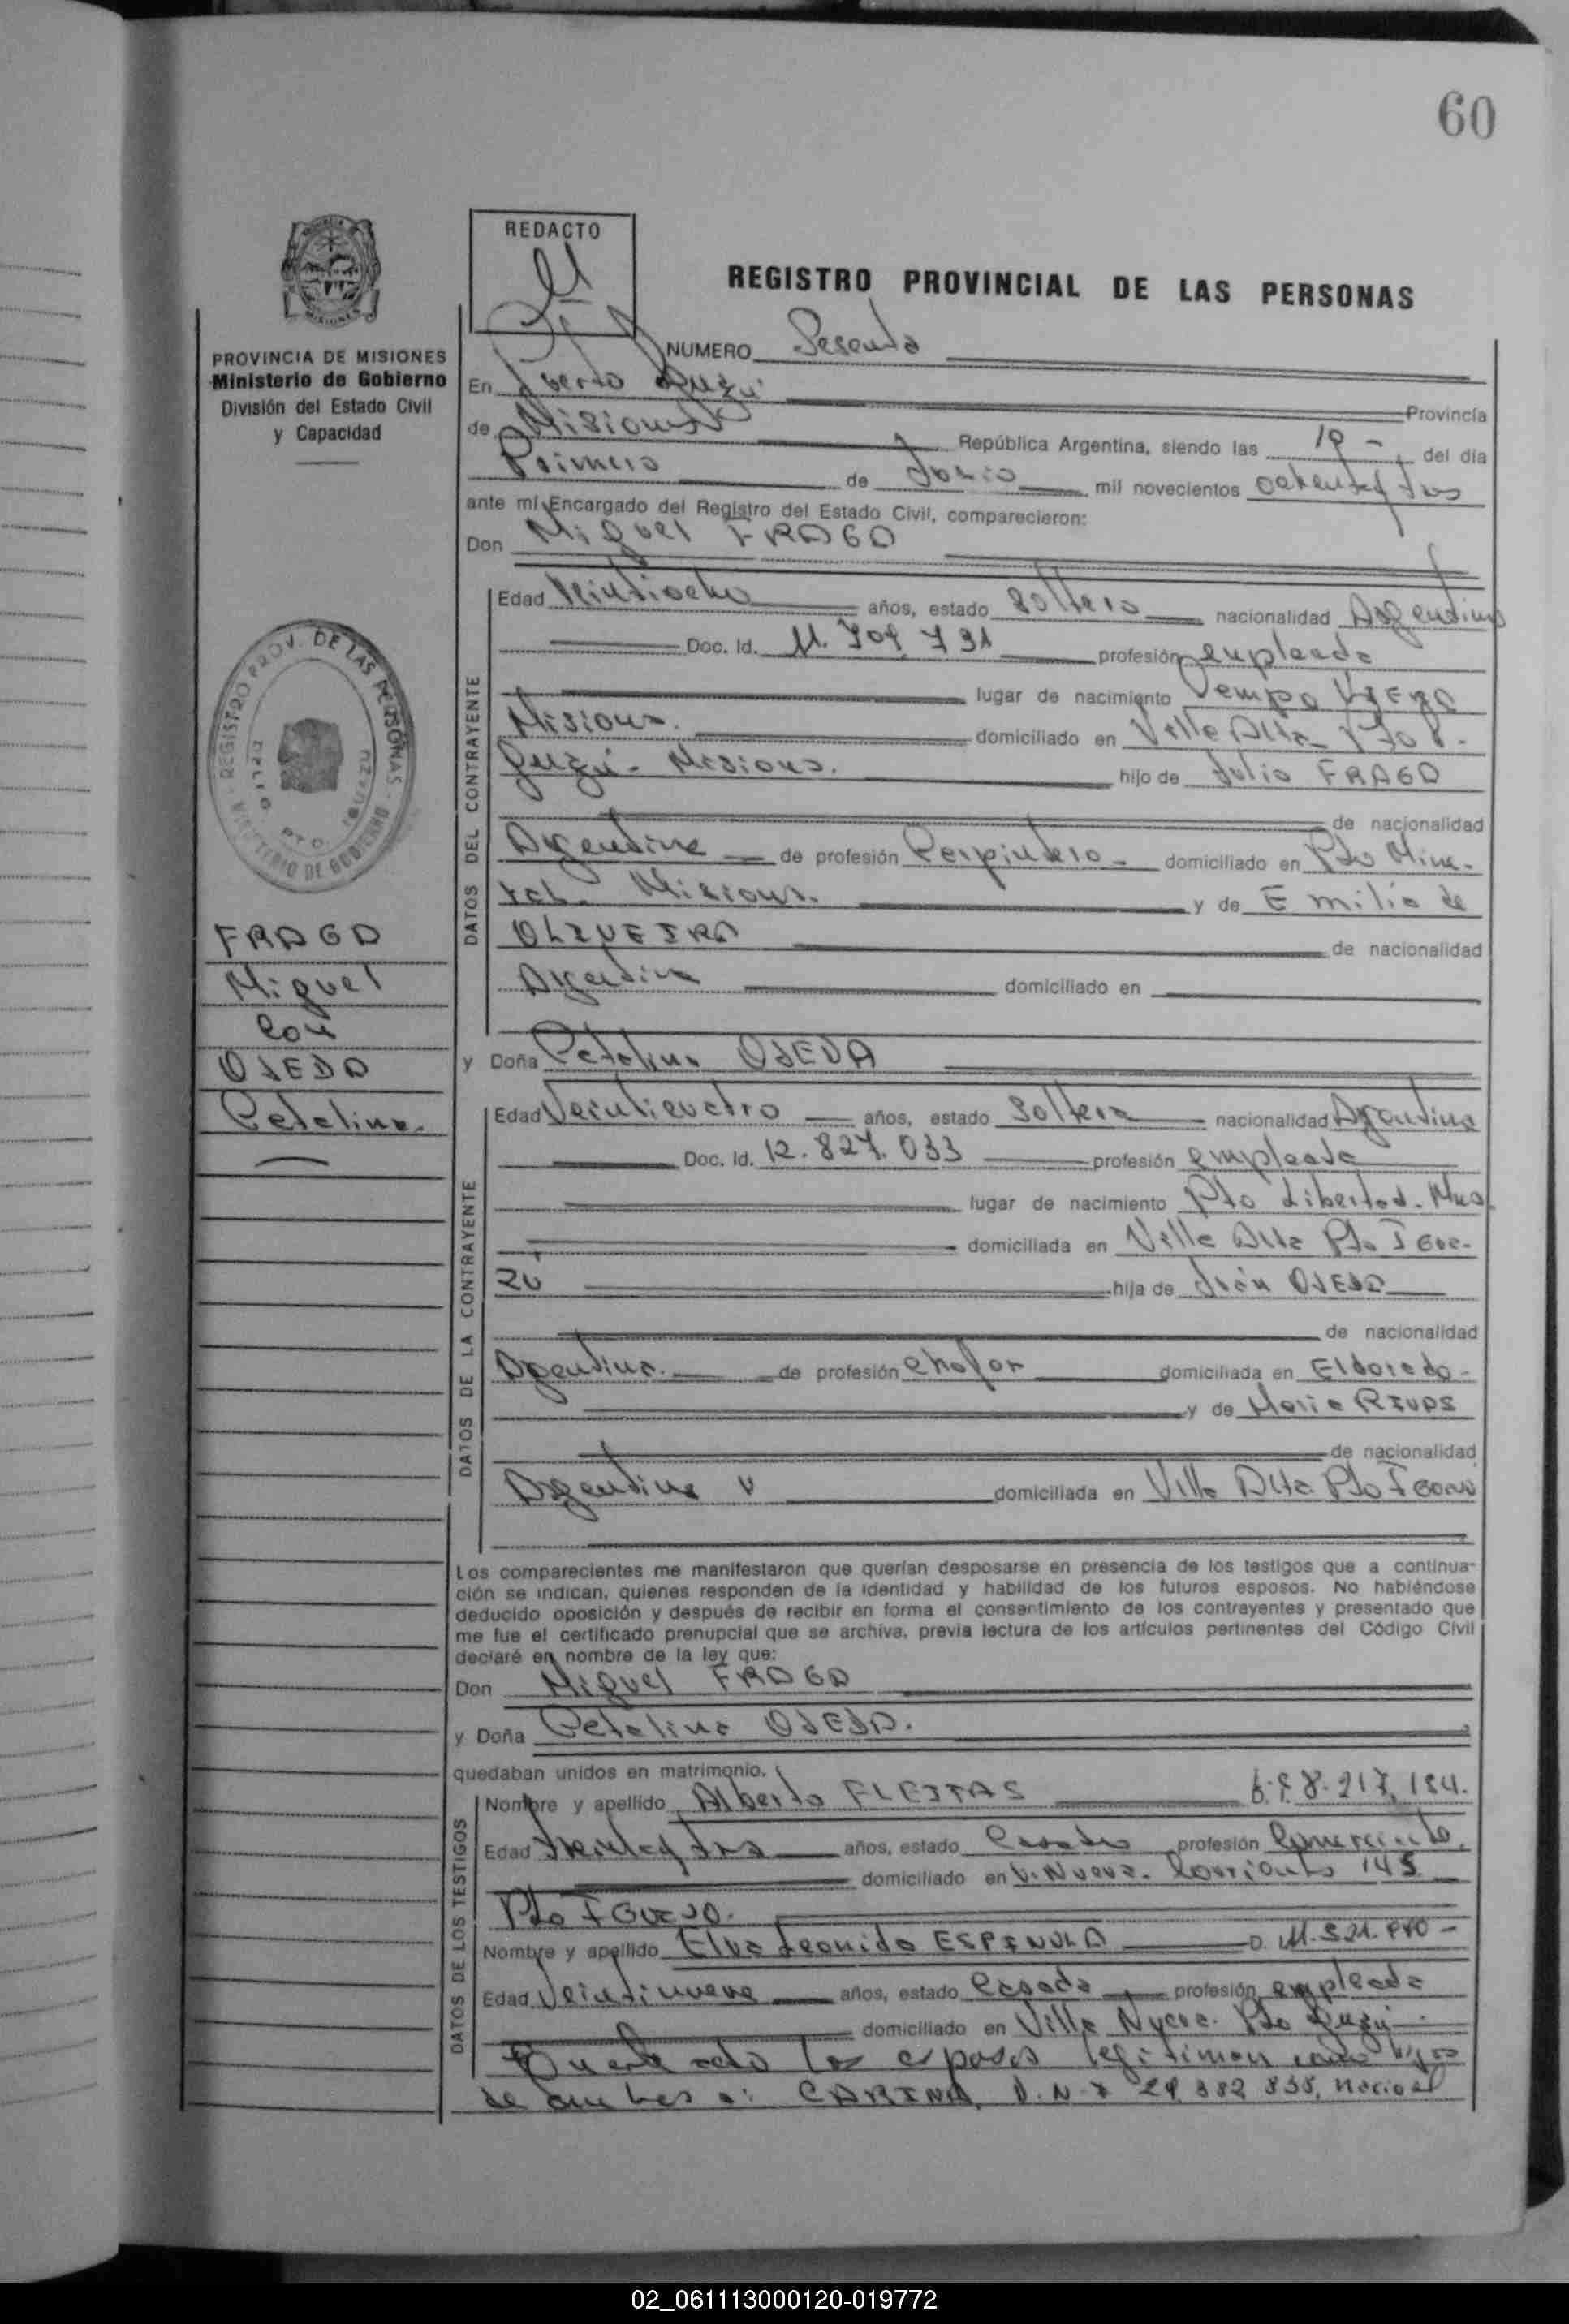 60
REDACTO
REGISTRO PROVINCIAL DE LAS PERSONAS
PROVINCIA DE MISIONES
Ministerio de Gobierno
División del Estado Civil
y Capacidad
NUMERO Sesenta
En Puerto Iguazú Provincia
de Misiones República Argentina, siendo las 10 - del día
Primero de mil novecientos ochenta y
ante mi Encargado del Registro del Estado Civil, comparecieron:
Don Miguel FRAGA
REGISTRO PROV. DE LAS PERSONAS - MINISTERIO DE GOBIERNO
PTO. IGUAZU
FRAGA
Miguel
con
OJEDA
Catalina
DATOS DEL CONTRAYENTE
Edad Veintiocho años, estado soltero nacionalidad Argentino
Doc. Id. 11.709.731 profesión empleado
lugar de nacimiento
Misiones. domiciliado en Villa Alta Pto I-
guazú - Misiones. hijo de Julio FRAGA
de nacionalidad
Argentina de profesión Carpintero - domiciliado en Pto Mine-
ral. Misiones. y de Emilia de
OLIVEIRA de nacionalidad
Argentina domiciliado en
y Doña Catalina OJEDA
DATOS DE LA CONTRAYENTE
Edad Veinticuatro años, estado soltera nacionalidad Argentina
Doc. Id. 12.827.033 profesión empleada
lugar de nacimiento Pto Libertad. Mnes.
domiciliada en Villa Alta Pto Igua-
zú hija de Juán OJEDA
de nacionalidad
Argentina. de profesión chofer domiciliada en Eldorado -
y de Maria RIVAS
de nacionalidad
Argentina domiciliada en Villa Alta Pto Iguazú
Los comparecientes me manifestaron que querían desposarse en presencia de los testigos que a continua-
ción se indican, quienes responden de la identidad y habilidad de los futuros esposos. No habiéndose
deducido oposición y después de recibir en forma el consentimiento de los contrayentes y presentado que
me fue el certificado prenupcial que se archiva, previa lectura de los artículos pertinentes del Código Civil
declaré en nombre de la ley que:
Don Miguel FRAGA
y Doña Catalina OJEDA.
quedaban unidos en matrimonio.
DATOS DE LOS TESTIGOS
Nombre y apellido Alberto FLEITAS 8.217.184.
Edad Treinta y tres años, estado Casado profesión Comerciante.
domiciliado en V. Nueva - Corrientes 145
Pto Iguazú.
Nombre y apellido Elva Leonida ESPINOLA
Edad Veintinueve años, estado Casada profesión empleada
domiciliado en Villa Nueva. Pto Iguazú
En este acto los esposos legitiman como hijos
de ambos a: CARINA, D.N.I 29.382.835, nacio el
02_061113000120-019772